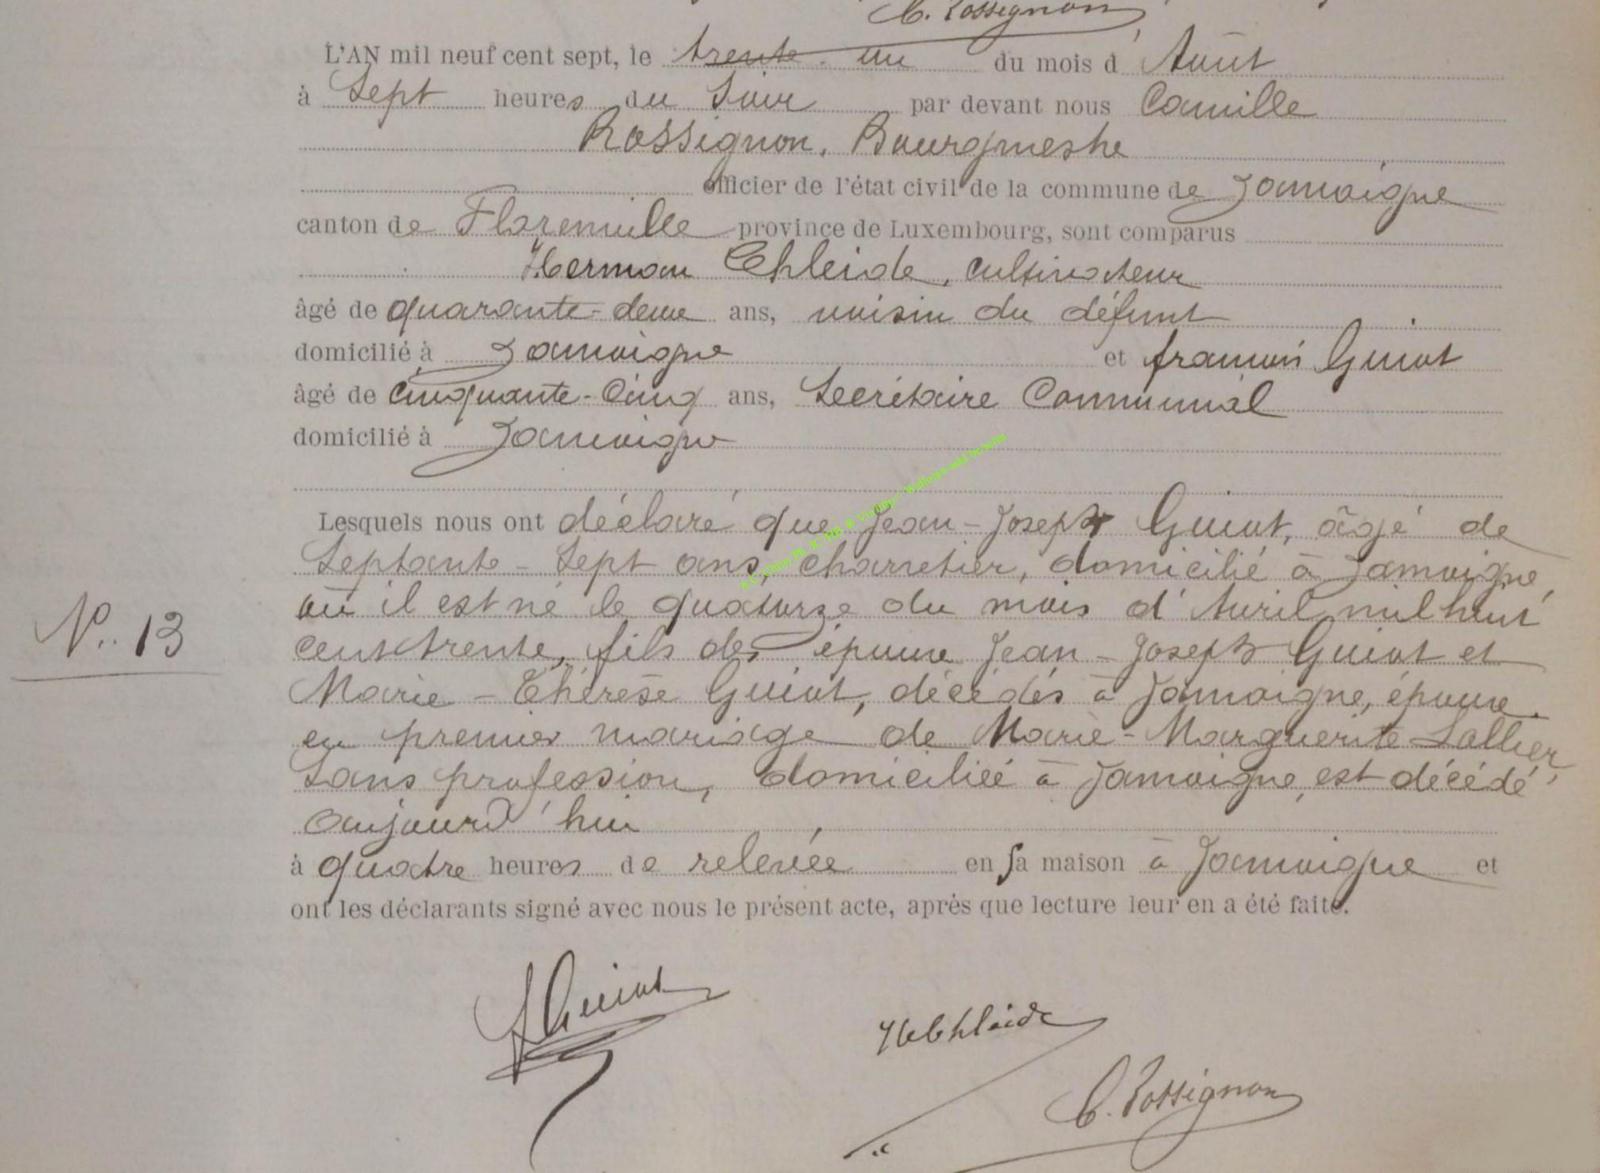 C. Rossignon
L'AN mil neuf cent sept, le trente-un du mois d'Août
à Sept heures du Soir par devant nous Camille
Rossignon, Bourgmestre
officier de l'état civil de la commune de Jamoigne
canton de Florenville province de Luxembourg, sont comparus
Herman Thleide, cultivateur
âgé de quarante-deux ans, voisin du défunt
domicilié à Jamoigne et François Guiot
âgé de cinquante-cinq ans, Secrétaire Communal
domicilié à Jamoigne
Lesquels nous ont déclaré que Jean-Joseph Guiot, âgé de
Septante-Sept ans, charretier, domicilié à Jamoigne,
où il est né le quatorze du mois d'Avril mil huit
cent trente, fils des époux Jean-Joseph Guiot et
N°. 13
Marie-Thérèse Guiot, décédés à Jamoigne, époux
en premier mariage de Marie-Marguerite Lallier,
Sans profession, domiciliée à Jamoigne, est décédé
aujourd'hui
à quatre heures de relevée en Sa maison à Jamoigne et
ont les déclarants signé avec nous le présent acte, après que lecture leur en a été faite.
Guiot
C. Rossignon